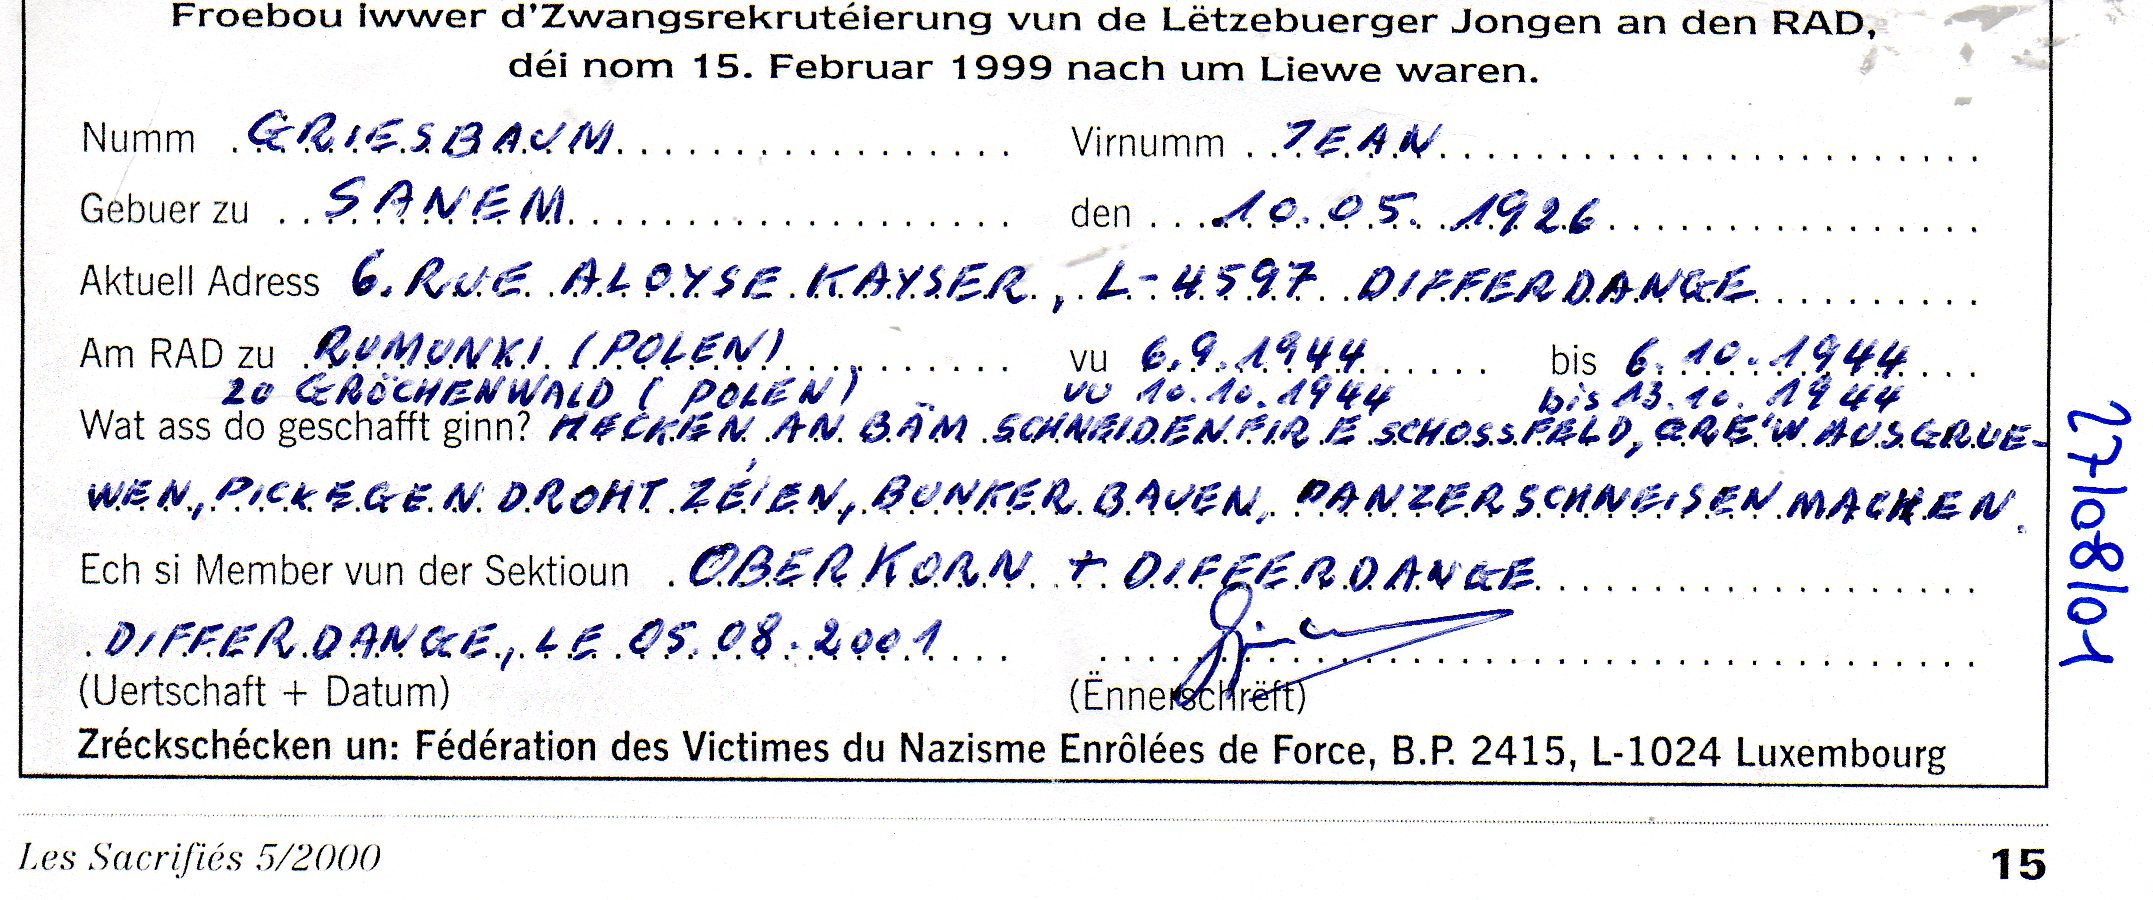 Froebou iwwer d'Zwangsrekrutéierung vun de Lëtzebuerger Jongen an den RAD,
déi nom 15. Februar 1999 nach um Liewe waren.
Numm GRIESBAUM Virnumm JEAN
Gebuer zu SANEM den 10.05.1926
Aktuell Adress 6. RUE ALOYSE KAYSER, L-4597 DIFFERDANGE
Am RAD zu RUMUNKI (POLEN) vu 6.9.1944 bis 6.10.1944
zo GRÖCHENWALD (POLEN) vu 10.10.1944 bis 13.10.1944
Wat ass do geschafft ginn? HECKEN AN BÄM SCHNEIDEN FIR E SCHOSSFELD, GRE'W AUSGRUE-
WEN, PICKEGEN DROHT ZÉIEN, BUNKER BAUEN, PANZERSCHNEISEN MACHEN.
Ech si Member vun der Sektioun OBERKORN + DIFFERDANGE
DIFFERDANGE, LE 05.08.2001
(Uertschaft + Datum) (Ënnerschrëft)
Zréckschécken un: Fédération des Victimes du Nazisme Enrôlées de Force, B.P. 2415, L-1024 Luxembourg
27/08/01
Les Sacrifiés 5/2000 15